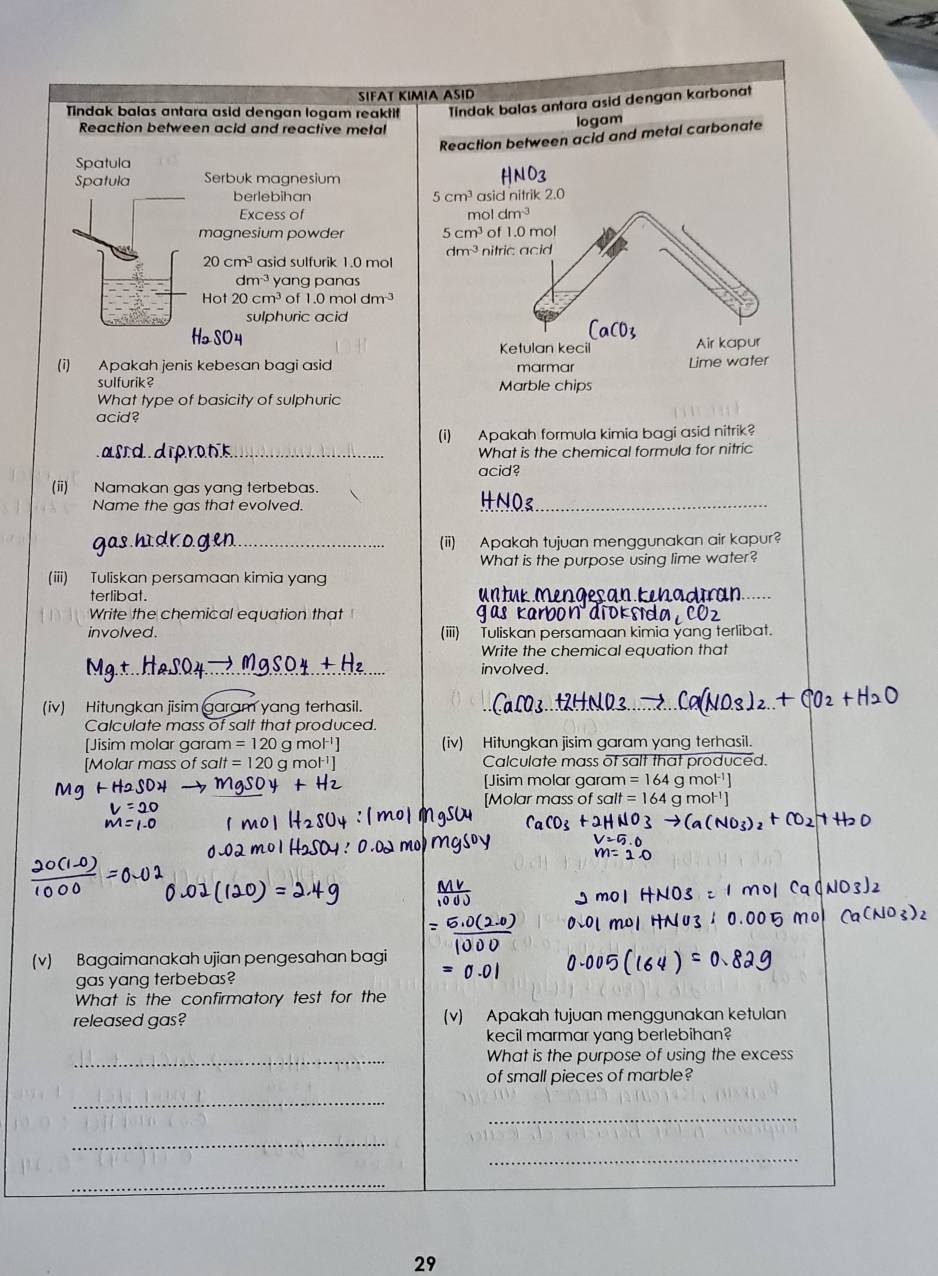 SIFAT KIMIA ASID
Tindak balas antara asid dengan logam reaktif
Reaction between acid and reactive metal
Spatula
Spatula
Serbuk magnesium
berlebihan
Excess of
magnesium powder
20 cm³ asid sulfurik 1.0 mol
dm⁻³ yang panas
Hot 20 cm³ of 1.0 mol dm⁻³
sulphuric acid
H2SO4
(i) Apakah jenis kebesan bagi asid
sulfurik?
What type of basicity of sulphuric
acid?
asid diprotik
(ii) Namakan gas yang terbebas.
Name the gas that evolved.
gas hidrogen
(iii) Tuliskan persamaan kimia yang
terlibat.
Write the chemical equation that
involved.
Mg + H2SO4 → MgSO4 + H2
(iv) Hitungkan jisim garam yang terhasil.
Calculate mass of salt that produced.
[Jisim molar garam = 120 g mol⁻¹]
[Molar mass of salt = 120 g mol⁻¹]
Mg + H2SO4 → MgSO4 + H2
V = 20
M = 1.0
1 mol H2SO4 : 1 mol MgSO4
0.02 mol H2SO4 : 0.02 mol MgSO4
20(1.0)/1000 = 0.02
0.02(120) = 2.4g
(v) Bagaimanakah ujian pengesahan bagi
gas yang terbebas?
What is the confirmatory test for the
released gas?
Tindak balas antara asid dengan karbonat
logam
Reaction between acid and metal carbonate
HNO3
5 cm³ asid nitrik 2.0
mol dm⁻³
5 cm³ of 1.0 mol
dm⁻³ nitric acid
CaCO3
Ketulan kecil
marmar
Marble chips
Air kapur
Lime water
(i) Apakah formula kimia bagi asid nitrik?
What is the chemical formula for nitric
acid?
HNO3
(ii) Apakah tujuan menggunakan air kapur?
What is the purpose using lime water?
untuk mengesan kehadiran
gas karbon dioksida, CO2
(iii) Tuliskan persamaan kimia yang terlibat.
Write the chemical equation that
involved.
CaCO3 + 2HNO3 → Ca(NO3)2 + CO2 + H2O
(iv) Hitungkan jisim garam yang terhasil.
Calculate mass of salt that produced.
[Jisim molar garam = 164 g mol⁻¹]
[Molar mass of salt = 164 g mol⁻¹]
CaCO3 + 2HNO3 → Ca(NO3)2 + CO2 + H2O
V = 5.0
M = 2.0
MV/1000
2 mol HNO3 : 1 mol Ca(NO3)2
= 5.0(2.0)/1000
0.01 mol HNO3 : 0.005 mol Ca(NO3)2
= 0.01
0.005(164) = 0.82g
(v) Apakah tujuan menggunakan ketulan
kecil marmar yang berlebihan?
What is the purpose of using the excess
of small pieces of marble?
29